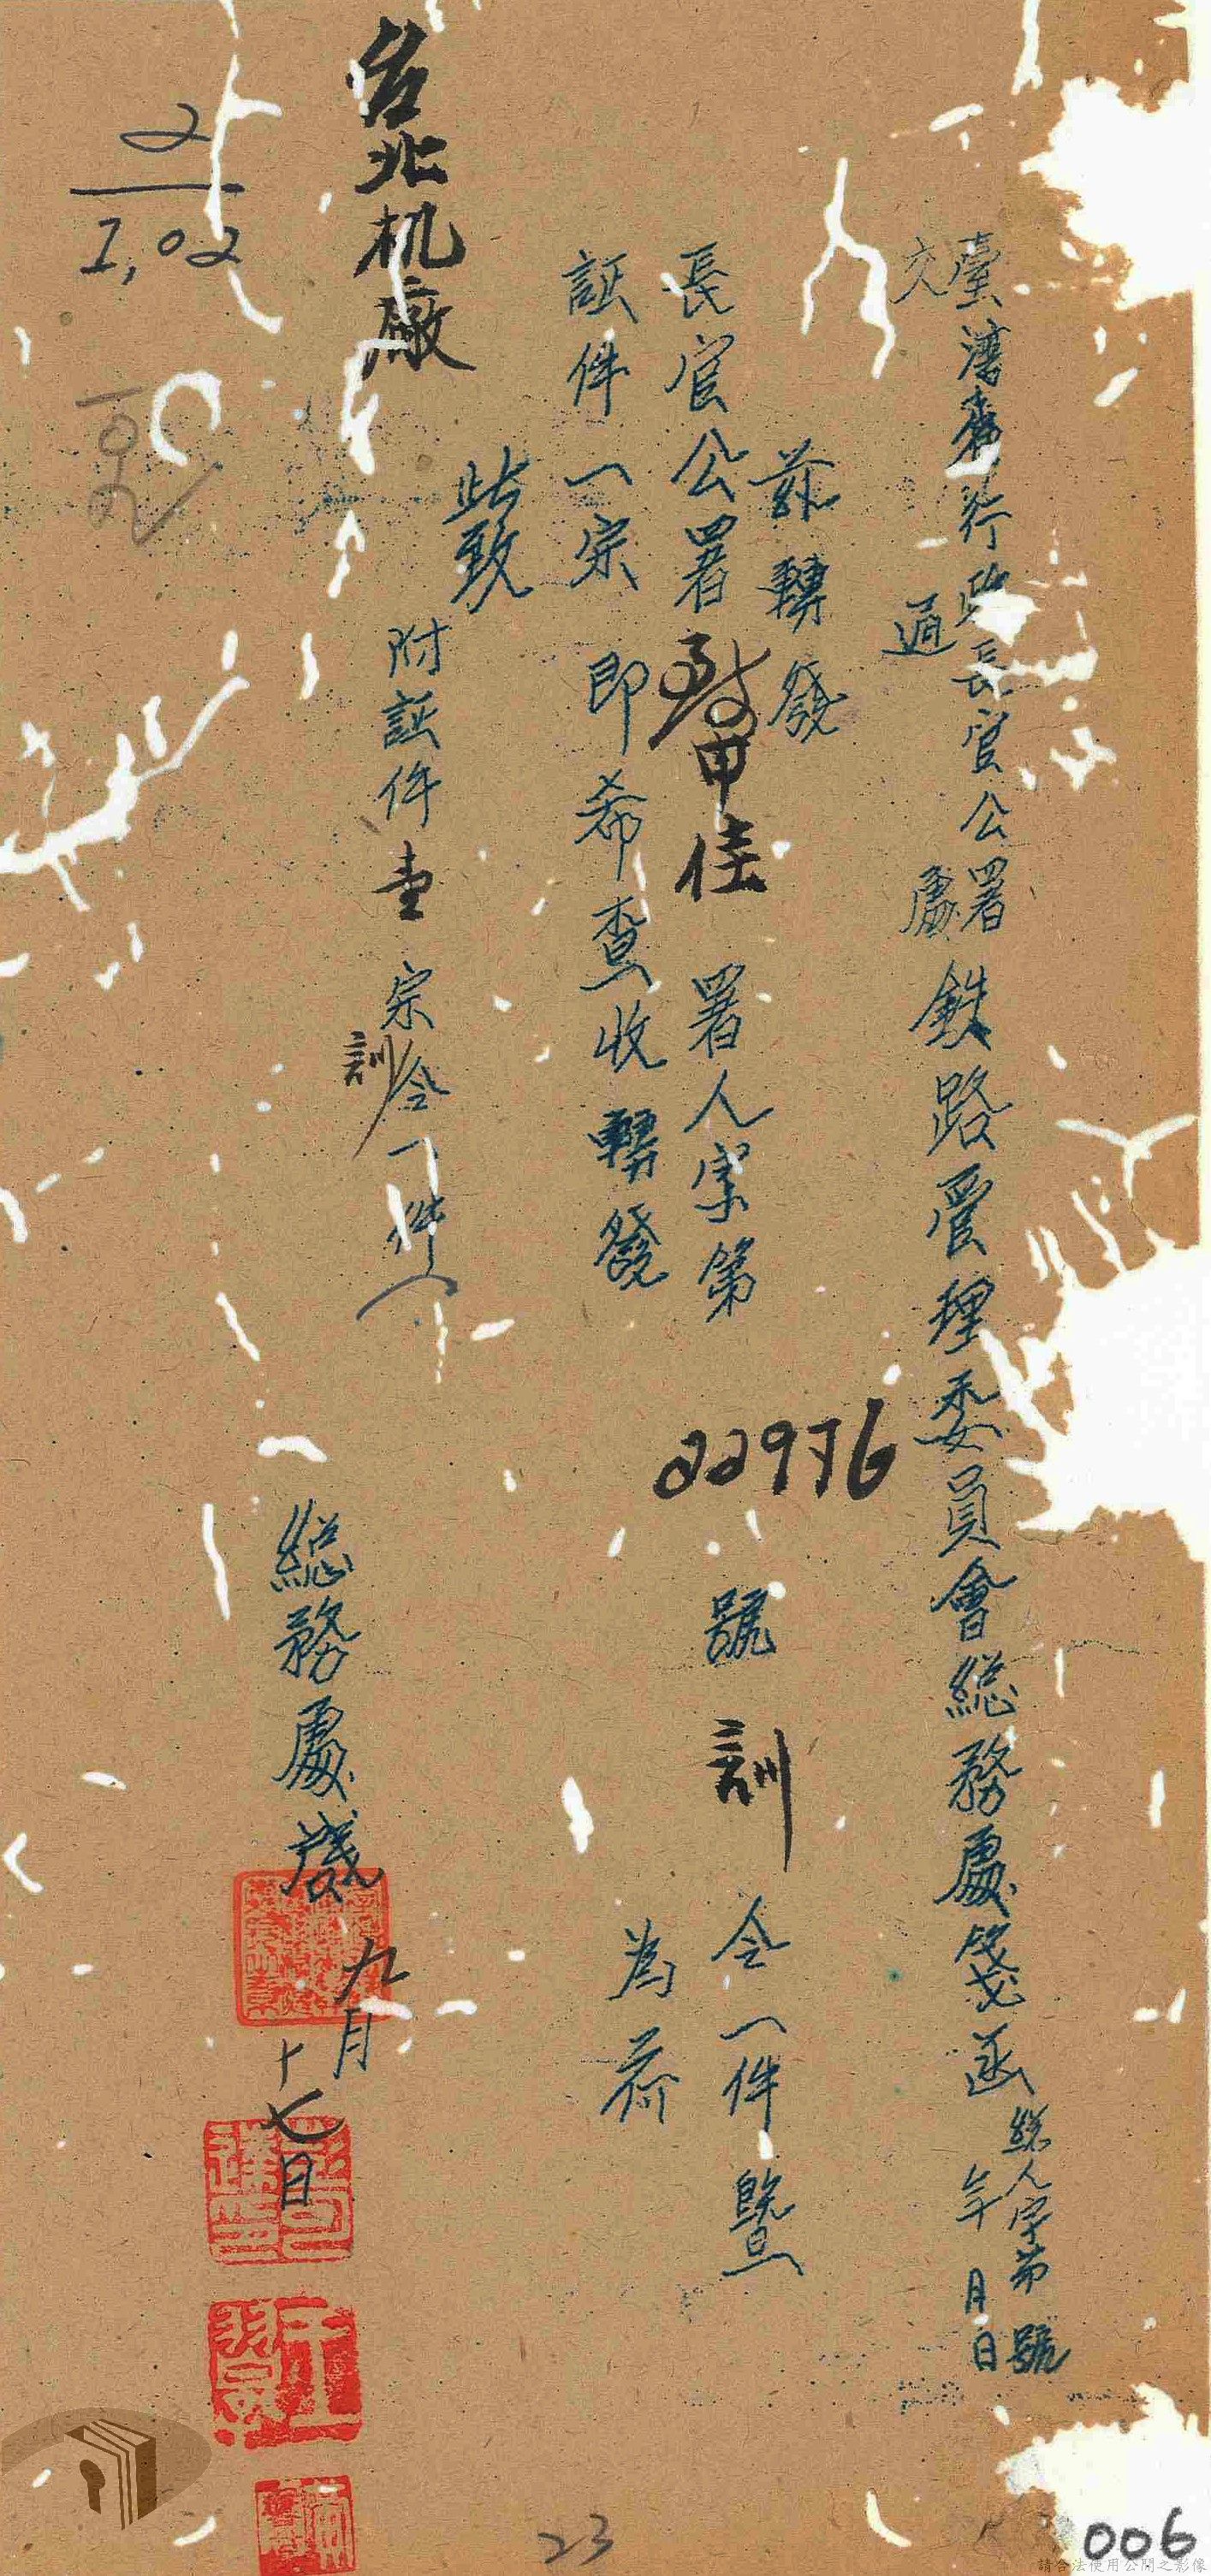 臺灣省行政長官公署鉄路管理委員會総務處箋函
交通處
総人字第 號
年 月 日
茲轉發
長官公署致申佳署人字第22976號訓令一件暨
証件一宗即希查收轉發為荷
此致
台北机廠
附証件壹宗訓令一件
総務處
九月
十七日
2
1,02
23
006
請合法使用公開之影像